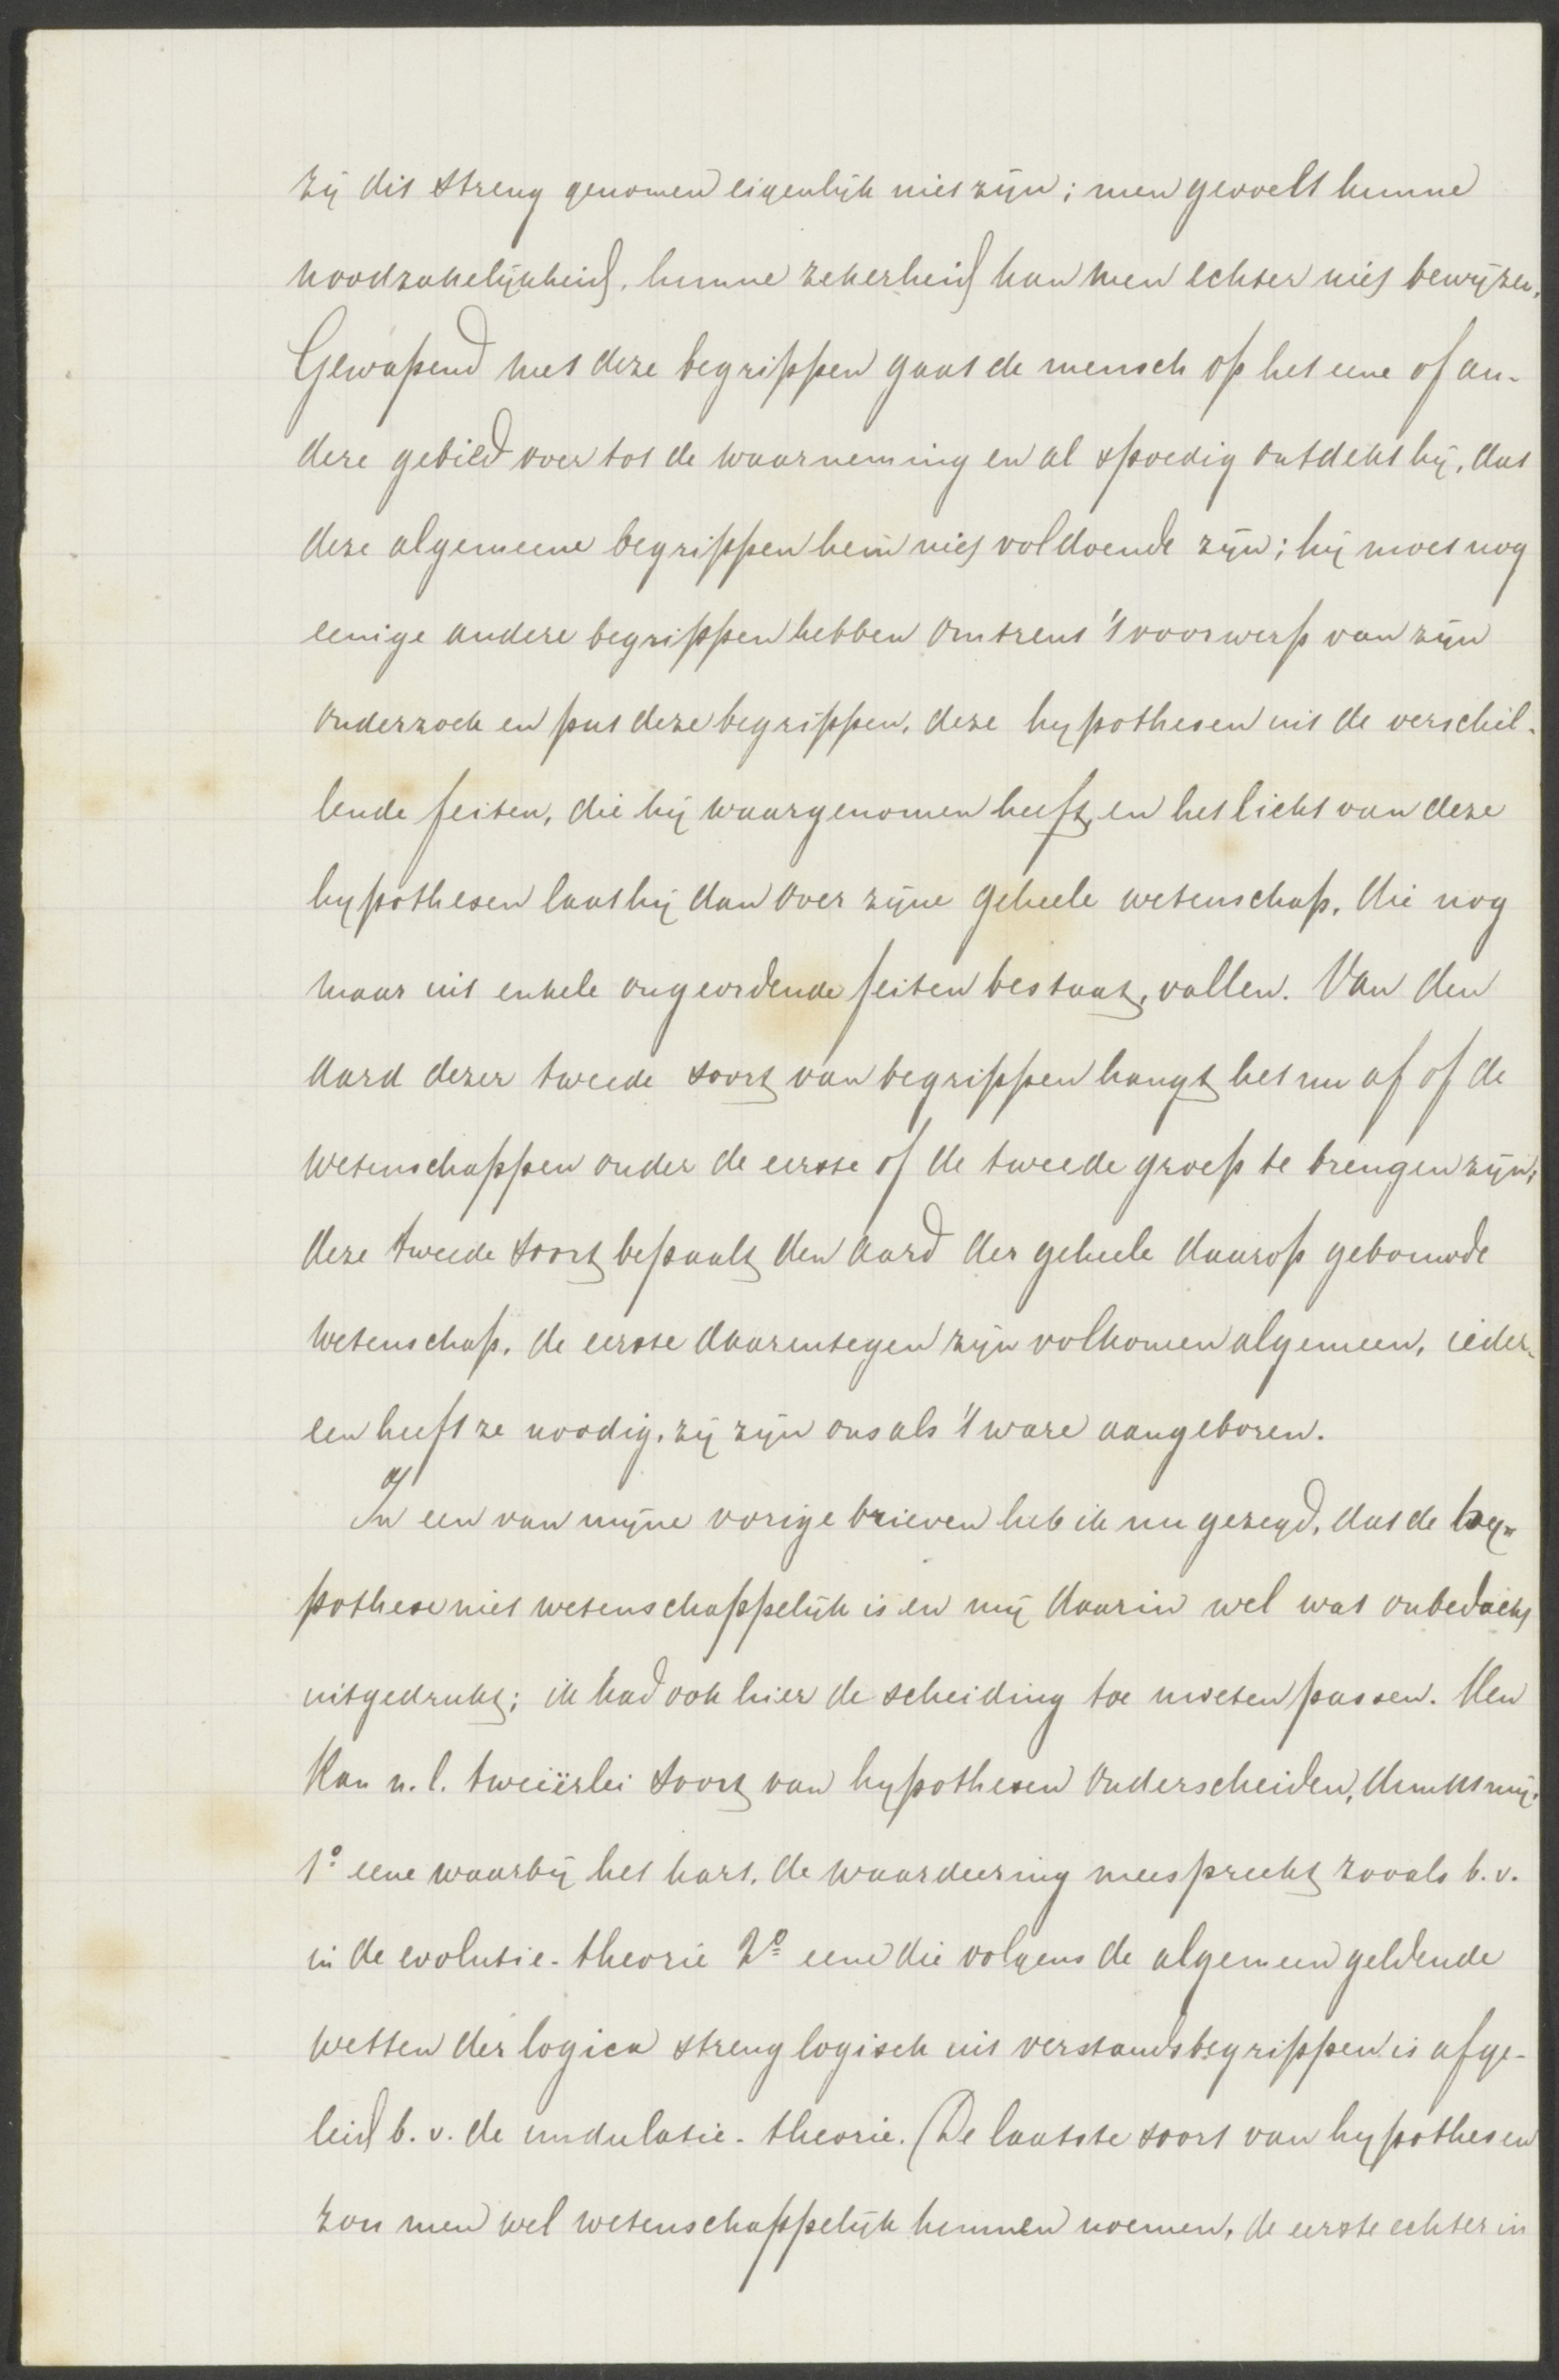 zij dit streng genomen eigenlijk niet zijn; men gevoelt hunne
noodzakelijkheid, hunne zekerheid kan men echter niet bewijzen.
Gewapend met deze begrippen gaat de mensch op het eene of an-
dere gebied over tot de waarneming en al spoedig ontdekt hij, dat
deze algemeene begrippen hem niet voldoende zijn; hij moet nog
eenige andere begrippen hebben omtrent 't voorwerp van zijn
onderzoek en put deze begrippen, deze hypothesen uit de verschil-
lende feiten, die hij waargenomen heeft, en het licht van deze
hypothesen laat hij dan over zijne geheele wetenschap, die nog
maar uit enkele ongeordende feiten bestaat, vallen. Van den
aard dezer tweede soort van begrippen hangt het nu af of de
wetenschappen onder de eerste of de tweede groep te brengen zijn;
deze tweede soort bepaalt den aard der geheele daarop gebouwde
wetenschap, de eerste daarentegen zijn volkomen algemeen, ieder-
een heeft ze noodig, zij zijn ons als 't ware aangeboren.
In een van mijne vorige brieven heb ik nu gezegd, dat de hy-
pothese niet wetenschappelijk is en mij daarin wel wat onbedacht
uitgedrukt; ik had ook hier de scheiding toe moeten passen. Men
kan n.l. tweeërlei soort van hypothesen onderscheiden, dunkt mij.
1º eene waarbij het hart, de waardeering meespreekt zooals b.v.
in de evolutie-theorie 2º eene die volgens de algemeen geldende
wetten der logica streng logisch uit verstandsbegrippen is afge-
leid b.v. de undulatie-theorie. (De laatste soort van hypothesen
zou men wel wetenschappelijk kunnen noemen, de eerste echter in